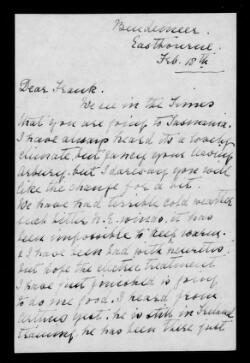 Bendemeer.
Eastbourne.
Feb. 18th
Dear Frank.
We see in the Times
that you are going to Tasmania.
I have always heard its a lovely
climate, but fancy your leaving
Arbury. but I daresay you will
like the change for a bit.
We have had terrible cold weather
such bitter N.E. winds, it has
been impossible to keep warm.
& I have been bad with neuritis.
but hope the electric treatment
I have just finished is going
to do me good. I heard from
Arthur yest. he is still in Ireland
training, he has been there just